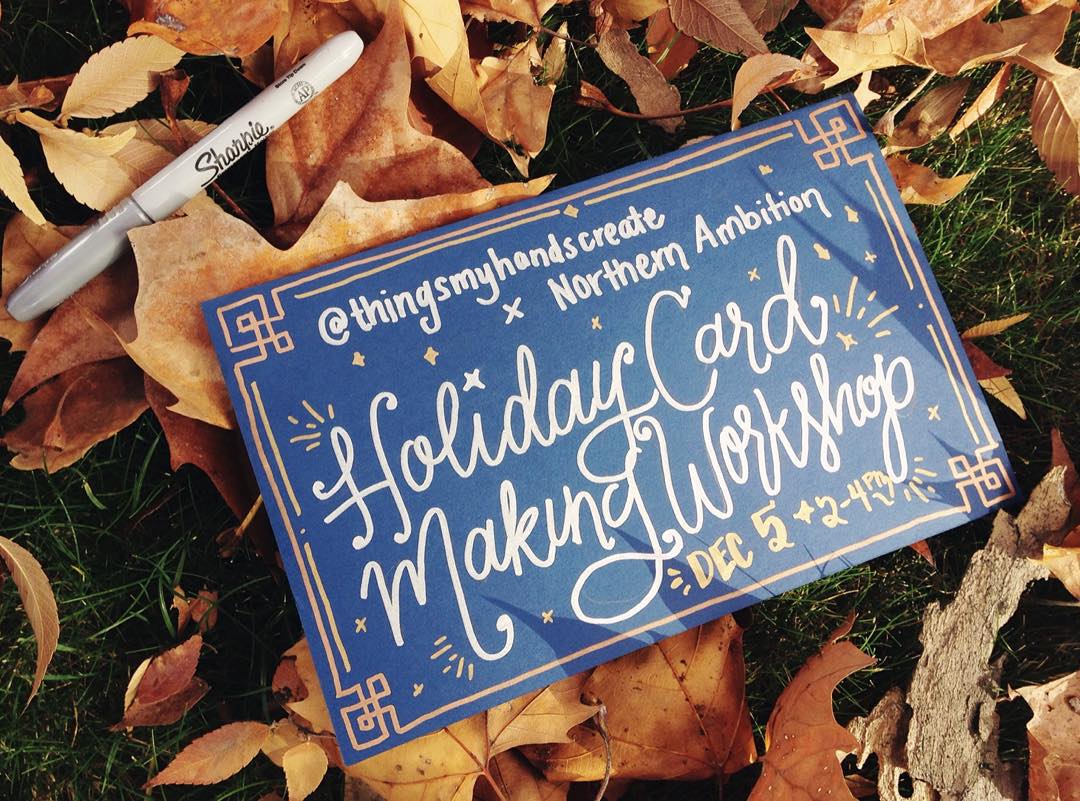 Sharpie
AP
@thingsmyhandscreate
x Northern Ambition
Holiday Card
Making Workshop
DEC 5 + 2-4PM